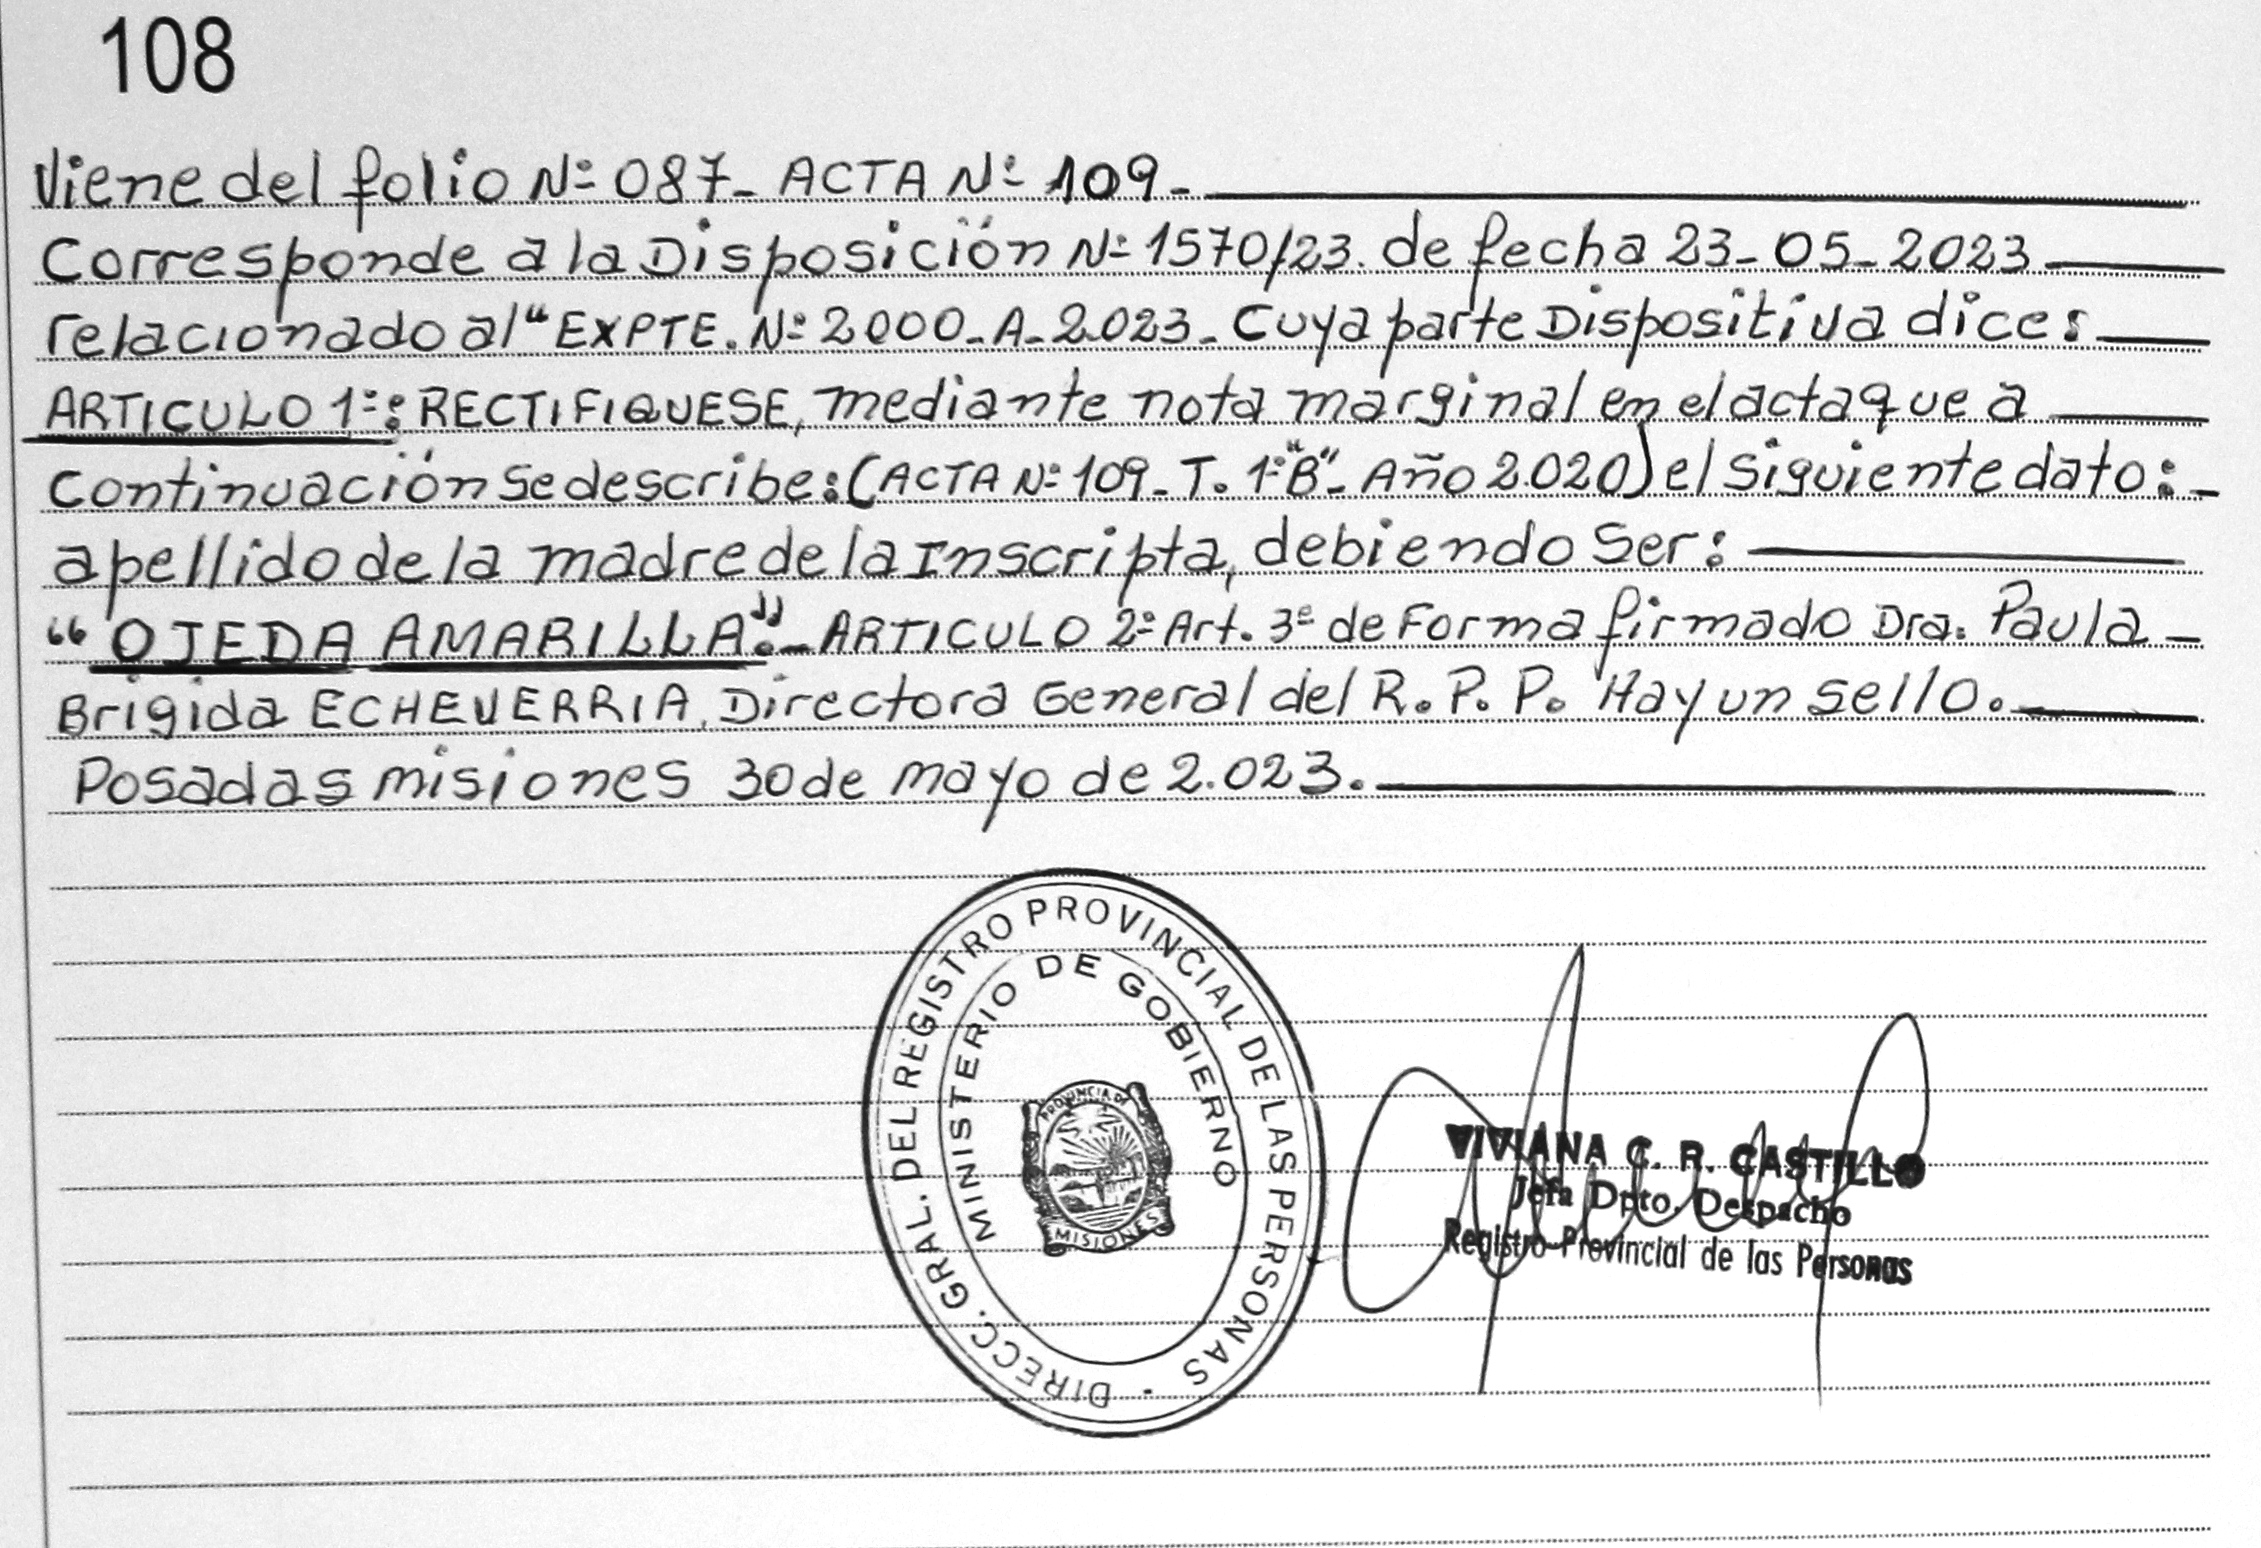 108
Viene del folio Nº 087_ ACTA Nº 109_
Corresponde a la Disposición Nº 1570/23. de fecha 23_05_2023
relacionado al "EXPTE. Nº 2000_A_2.023_ Cuya parte Dispositiva dice:
ARTICULO 1º: RECTIFIQUESE, mediante nota marginal en el acta que a
Continuación se describe: (ACTA Nº 109_T. 1º"B"_ Año 2.020) el siguiente dato:_
apellido de la madre de la Inscripta, debiendo Ser:
"OJEDA AMARILLA"._ ARTICULO 2º Art. 3º de Forma firmado Dra. Paula_
Brigida ECHEVERRIA, Directora General del R. P. P. Hay un sello.
Posadas misiones 30 de mayo de 2.023.
DIRECC. GRAL. DEL REGISTRO PROVINCIAL DE LAS PERSONAS
MINISTERIO DE GOBIERNO
PROVINCIA DE
MISIONES
VIVIANA C. R. CASTILLO
Jefa Dpto. Despacho
Registro Provincial de las Personas